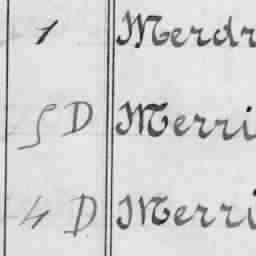 1 Merdr
5 D Merri
4 D Merri